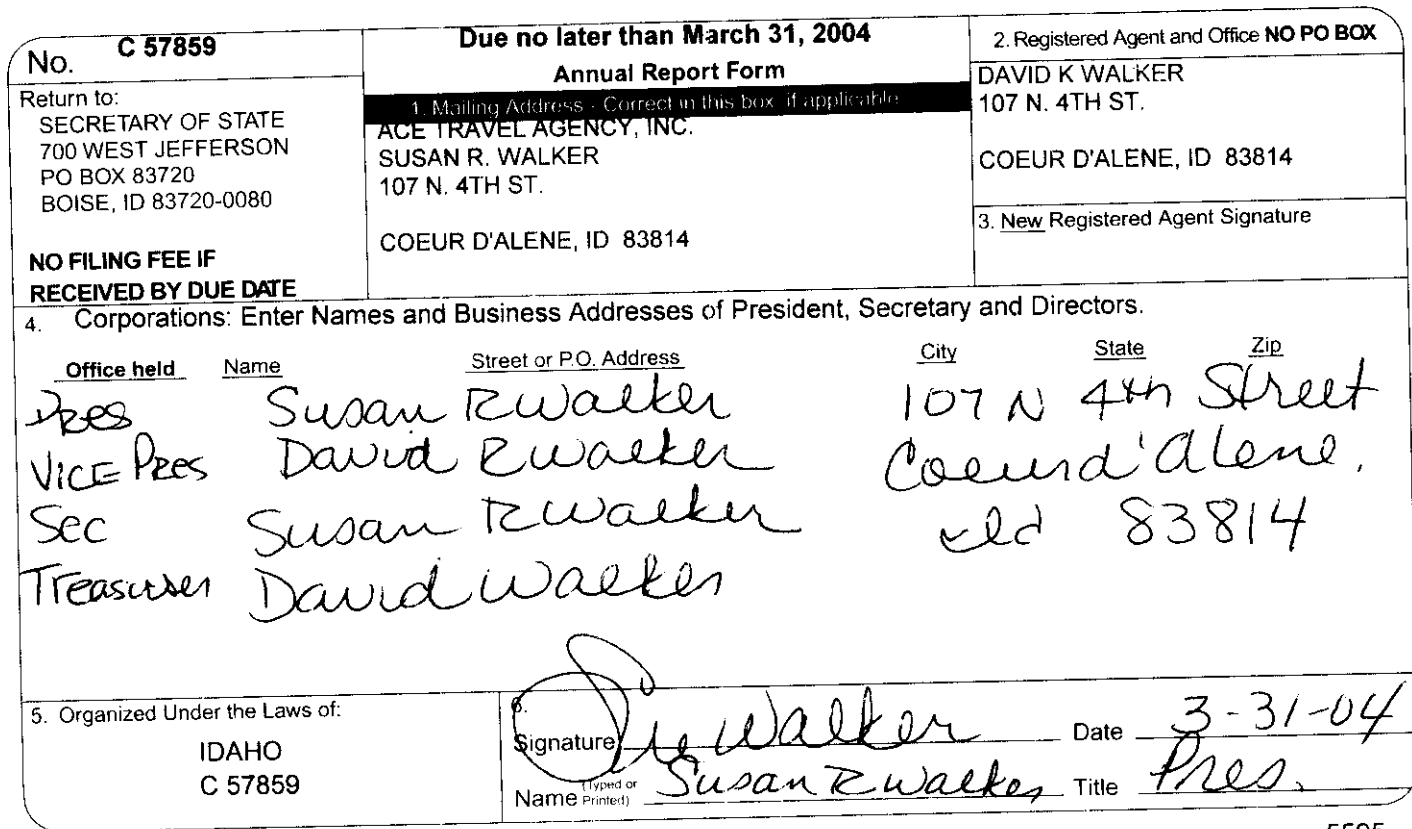 No. C 57859
Return to:
SECRETARY OF STATE
700 WEST JEFFERSON
PO BOX 83720
BOISE, ID 83720-0080
NO FILING FEE IF
RECEIVED BY DUE DATE
Due no later than March 31, 2004
Annual Report Form
1. Mailing Address - Correct in this box if applicable
ACE TRAVEL AGENCY, INC.
SUSAN R. WALKER
107 N. 4TH ST.
COEUR D'ALENE, ID 83814
2. Registered Agent and Office NO PO BOX
DAVID K WALKER
107 N. 4TH ST.
COEUR D'ALENE, ID 83814
3. New Registered Agent Signature
4. Corporations: Enter Names and Business Addresses of President, Secretary and Directors.
Office held Name Street or P.O. Address City State Zip
Pres Susan R Walker 107 N 4th Street
Vice Pres David R Walker Coeur d'Alene,
Sec Susan R Walker Id 83814
Treasurer David Walker
5. Organized Under the Laws of:
IDAHO
C 57859
6.
Signature Walker Date 3-31-04
Name (Typed or Printed) Susan R Walker Title Pres.